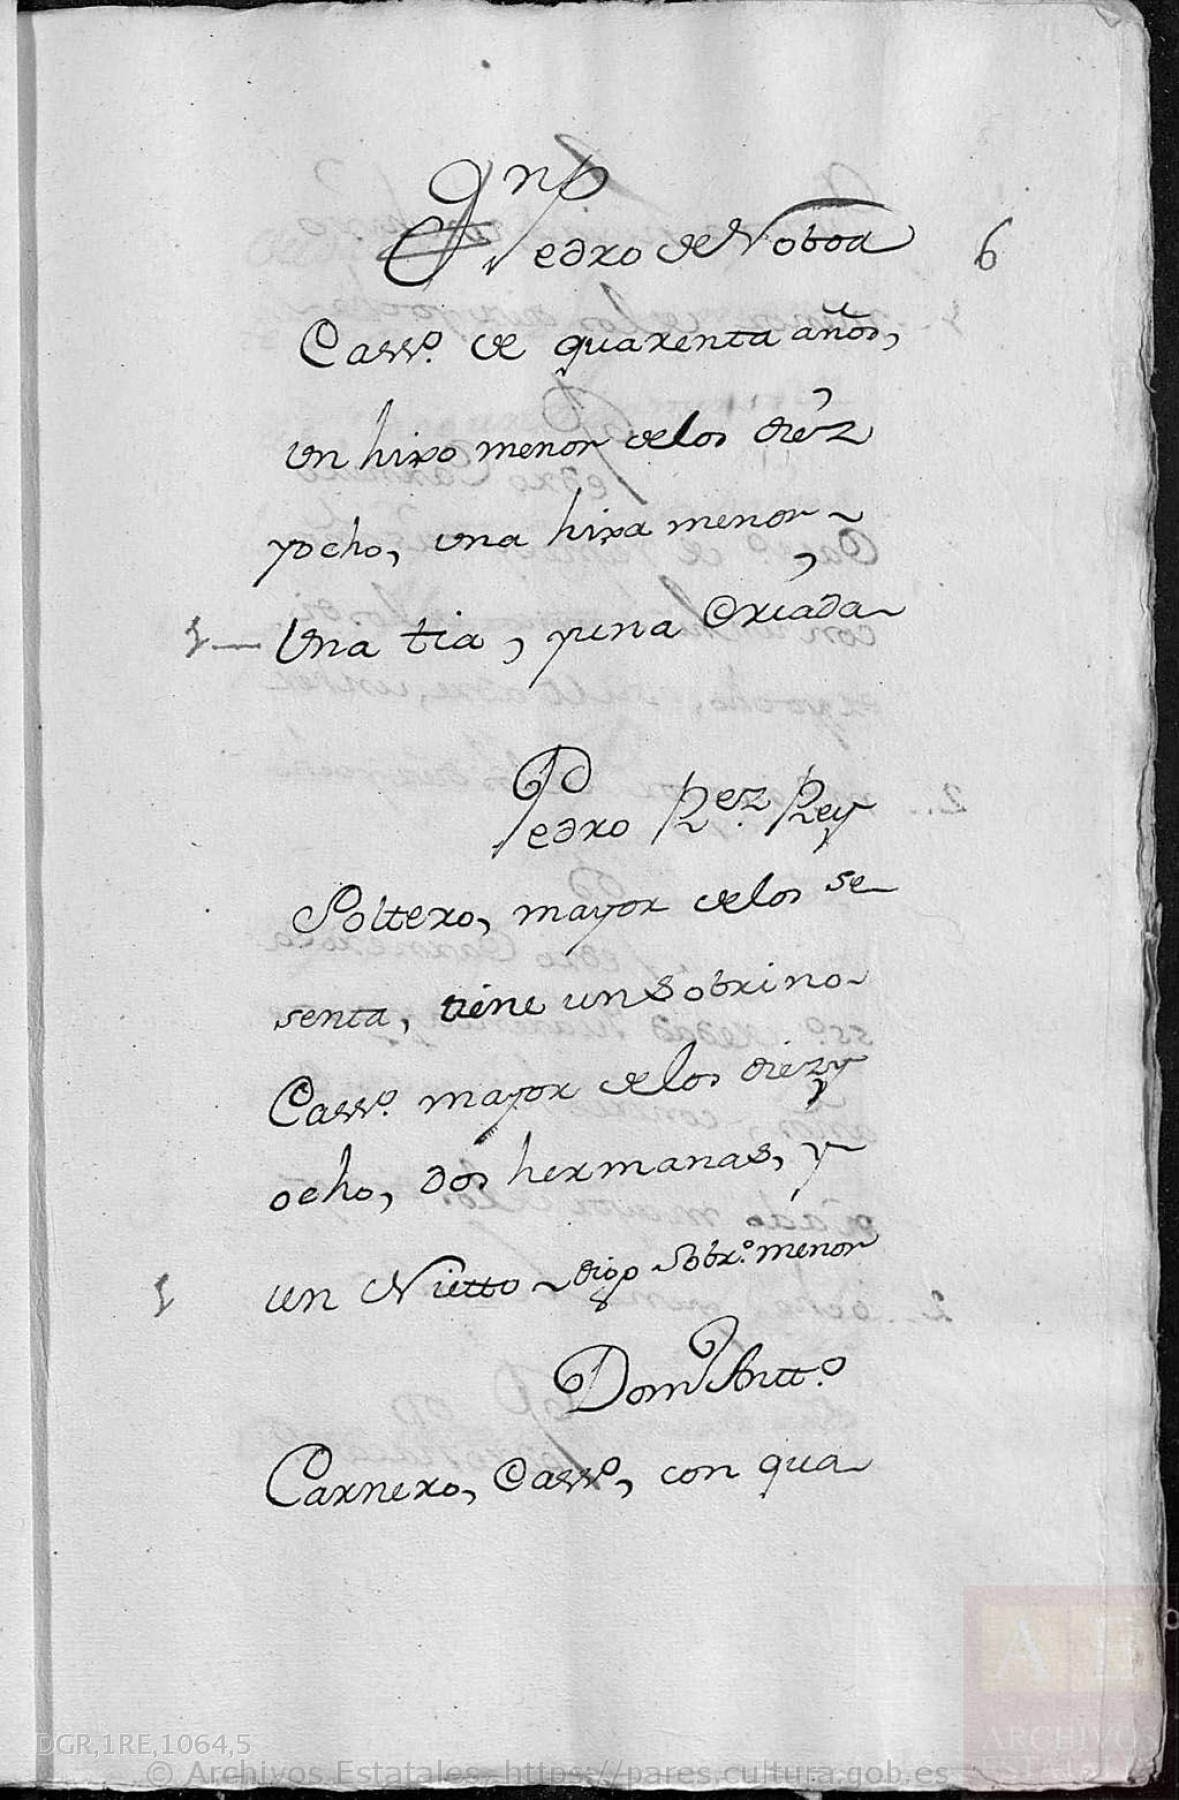 Dn Pedro de Noboa
6
Cassº. de quarenta años,
un hixo menor delos diéz
yocho, una hixa menor
1 Una tia, yuna Criáda
Pedro Rez. Rey
Soltero, mayor delos se
senta, tiene un Sobrino
Cassº. mayor delos diezy
ocho, dos hermanas, y
1 un Nietto digo Sobrº. menor
Domº Antt.º
Carnero, Cassº, con qua
DGR,1RE,1064,5
© Archivos Estatales https://pares.cultura.gob.es
AE
ARCHIVOS